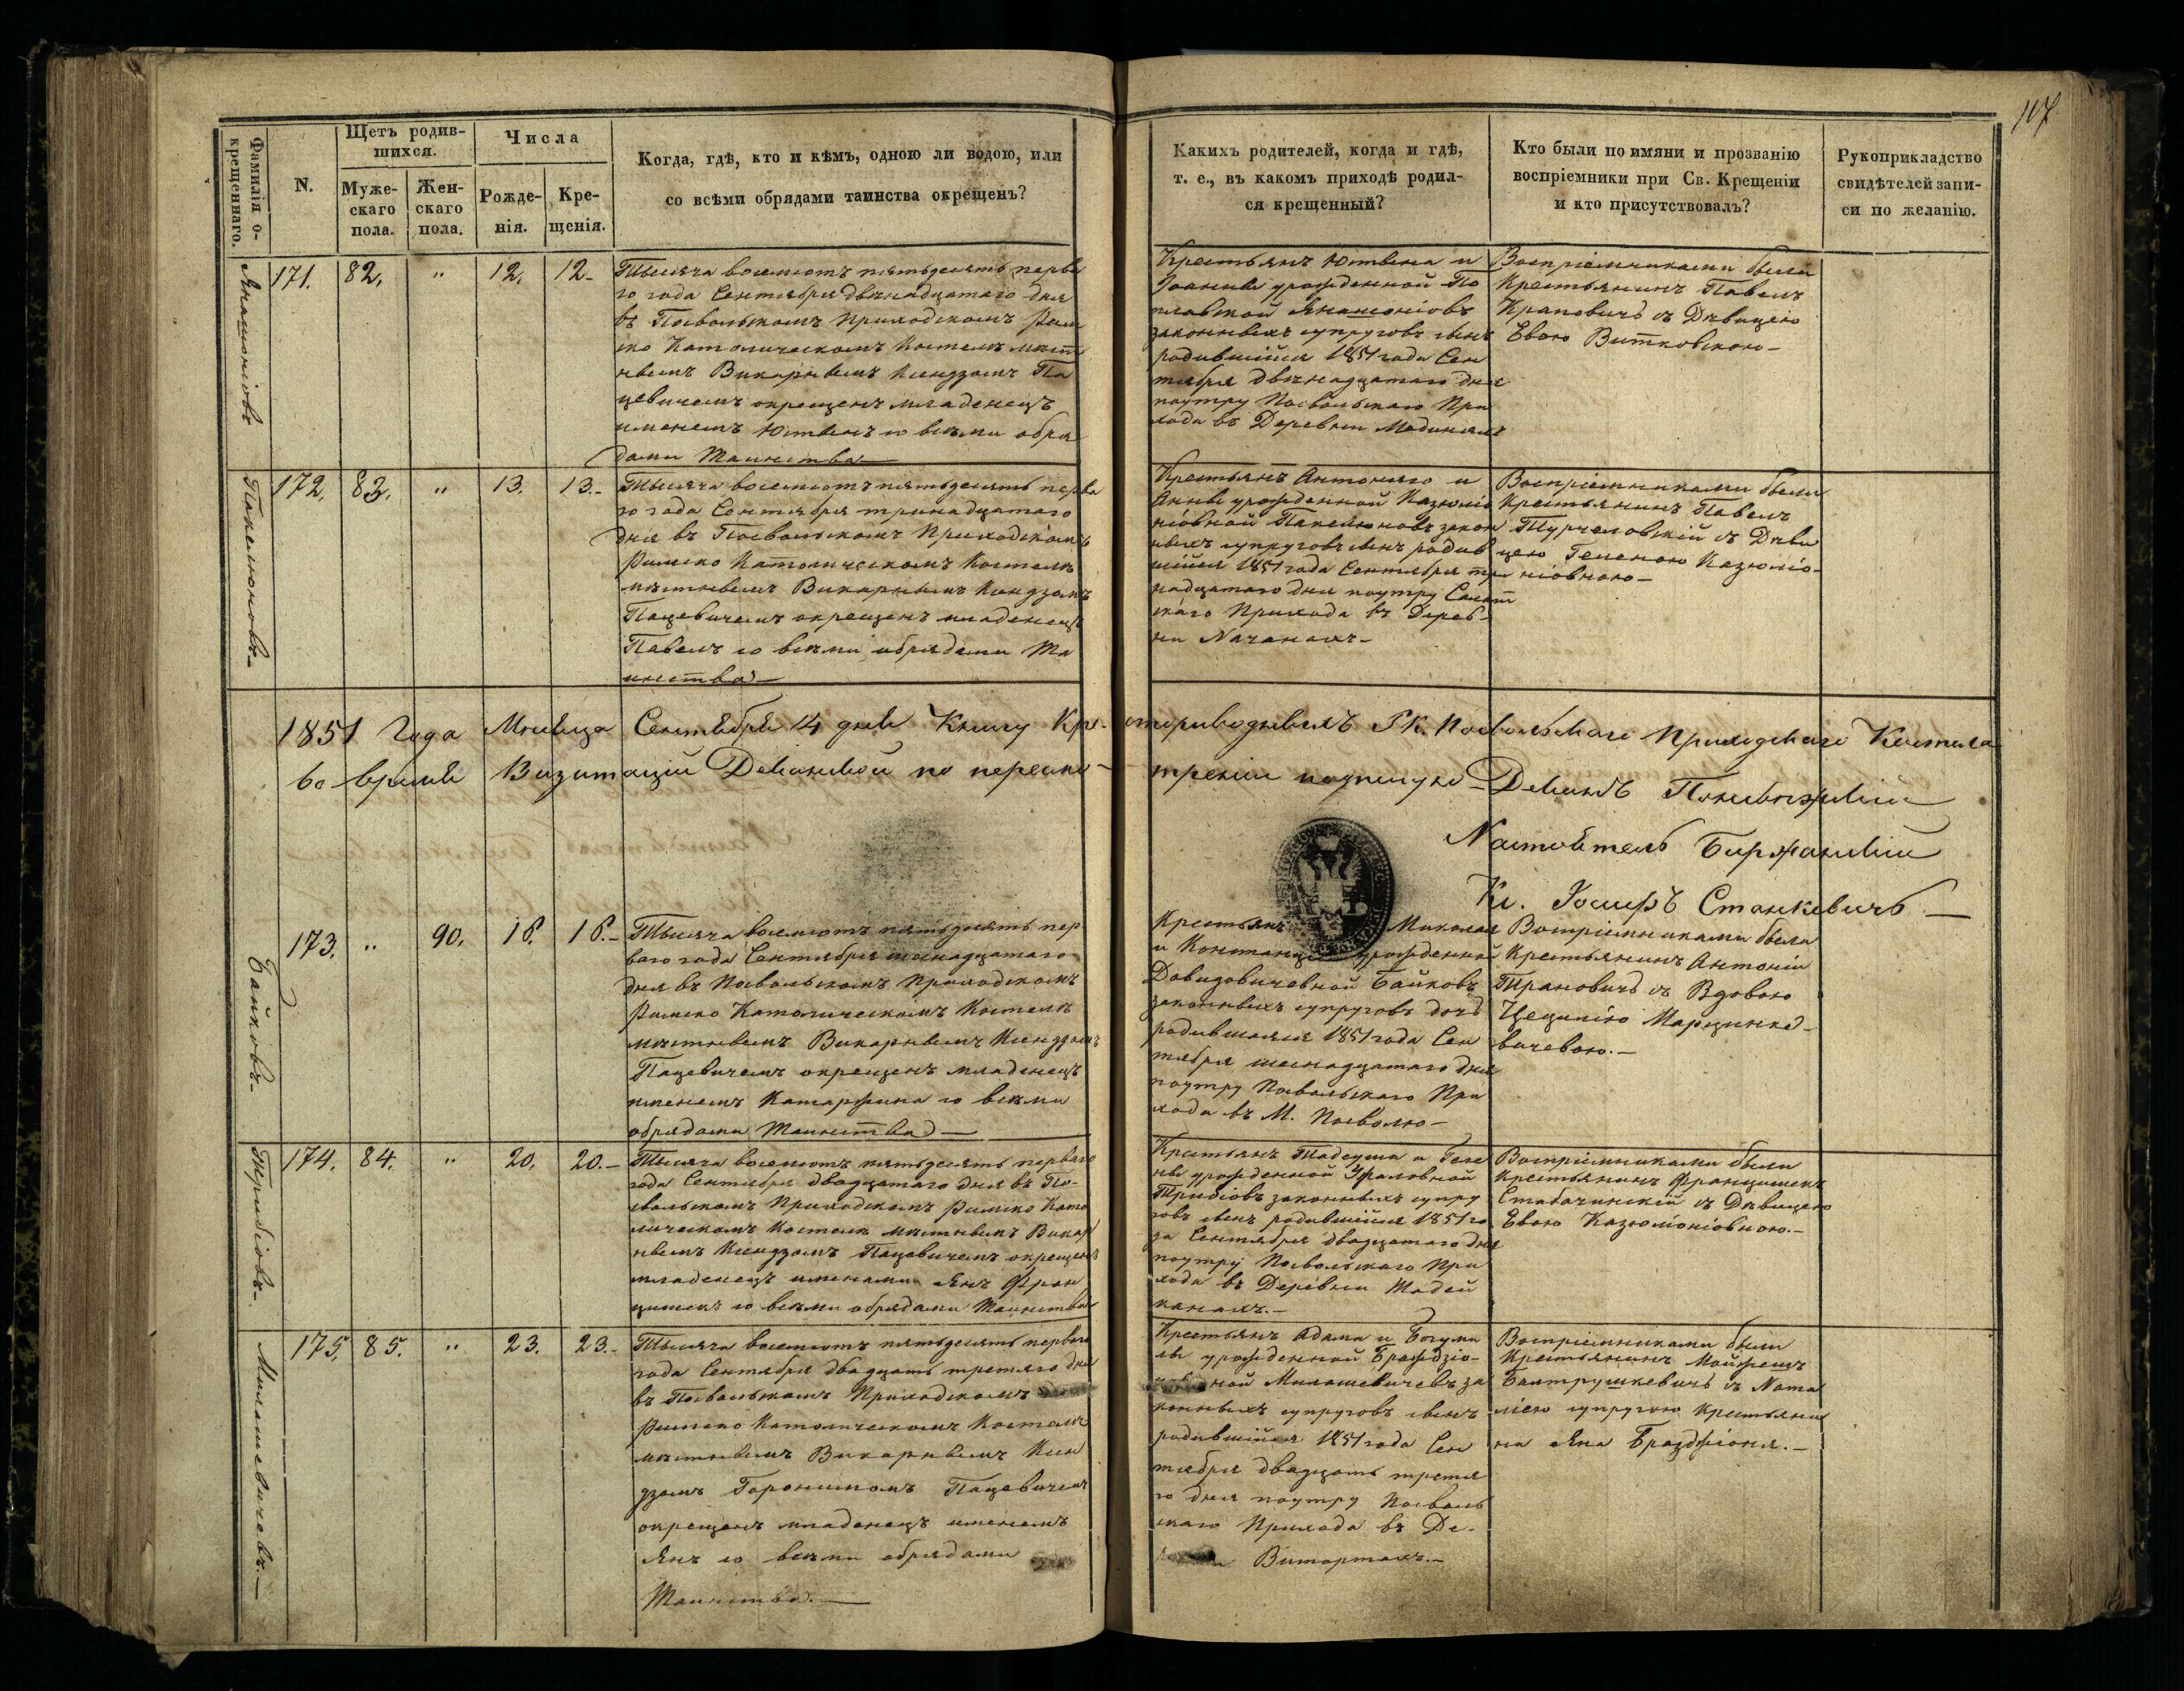 107
Фамилія о-
крещеннаго.
N.
Щетъ родив-
шихся.
Муже-
скаго
пола.
Жен-
скаго
пола.
Числа
Рожде-
нія.
Кре-
щенія.
Когда, гдѣ, кто и кѣмъ, одною ли водою, или
со всѣми обрядами таинства окрещенъ?
Каких родителей, когда и гдѣ,
т. е., въ какомъ приходѣ родил-
ся крещенный?
Кто были по имяни и прозванію
воспріемники при Св. Крещеніи
и кто присутствовалъ?
Рукоприкладство
свидѣтелей запи-
си по желанію.
171. 82. " 12. 12.
Тысяча восемсотъ пятьдесятъ перва
го года Сентября двѣнадцатаго дня
въ Посвольскомъ Приходскомъ Рим
ско Католическомъ Костелѣ мѣст
нымъ Викарнымъ Ксендзомъ Па
цевичемъ окрещенъ младенецъ
именемъ Юстинъ со всѣми обря
дами Таинства
Крестьянъ Юстина и
Іоанны урожденной По
плавской
законныхъ супруговъ сынъ
родившійся 1851 года Сен
тября двѣнадцатаго дня
поутру Посвольскаго При
хода въ Деревни
Воспріемниками были
Крестьянинъ Павелъ
Краповичъ съ Дѣвицею
Евою Витковскою
Пакелюновъ
172. 83. " 13. 13.
Тысяча восемсотъ пятьдесятъ перва
го года Сентября тринадцатаго
дня въ Посвольскомъ Приходскомъ
Римско Католическомъ Костелѣ
мѣстнымъ Викарнымъ Ксендзомъ
Пацевичемъ окрещенъ младенецъ
Павелъ со всѣми обрядами Та
инства
Крестьянъ Антонаго и
Анны урожденной Казюліо
ніовной Пакелюновъ закон
ныхъ супруговъ сынъ родив
шійся 1851 года Сентября три
надцатаго дня поутру
скаго Прихода въ Дерев-
ни
Воспріемниками были
Крестьянинъ Павелъ
Турчеловскій съ Дѣви
цею Геленою Казюліо-
ніовною
1851 Года Мѣсяца Сентября 14 дня Книгу Кре- стороводныхъ Р. К. Посвольскаго Приходскаго Костела
во время Визитаціи Деканской по пересмо- треніи подписую Деканъ Поневѣжскій
Настоятель Биржанскій
Кс. Іосифъ Станкевичъ
Байковъ
173. " 90. 16. 16.
Тысяча восемсотъ пятьдесятъ пер
ваго года Сентября шеснадцатаго
дня въ Посвольскомъ Приходскомъ
Римско Католическомъ Костелѣ
мѣстнымъ Викарнымъ Ксендзомъ
Пацевичемъ окрещенъ младенецъ
именемъ Катаржина со всѣми
обрядами Таинства
Крестьянъ Миколая
и Констанціи урожденной
Давидовичевной Байковъ
законныхъ супруговъ дочь
родившаяся 1851 года Сен
тября шеснадцатаго дня
поутру Посвольскаго При
хода въ М. Посволю
Воспріемниками были
Крестьянинъ Антоній
Трановичъ съ Вдовою
Цециліею Марцинке-
вичевою.
Трибіовъ
174. 84. " 20. 20.
Тысяча восемсотъ пятьдесятъ перваго
года Сентября двадцатаго дня въ По-
свольскомъ Приходскомъ Римско Като
лическомъ Костелѣ мѣстнымъ Викар
нымъ Ксендзомъ Пацевичемъ окрещенъ
младенецъ именами Янъ Фран
цишекъ со всѣми обрядами Таинства
Крестьянъ Тадеуша и Геле
ны урожденной
Трибіовъ законныхъ супру
говъ сынъ родившійся 1851 го
да Сентября двадцатаго дня
поутру Посвольскаго При
хода въ Деревни
Воспріемниками были
Крестьянинъ Францишекъ
Стабачинскій съ Дѣвицею
Евою Казюліоніовною.
Милашевичевъ
175. 85. " 23. 23.
Тысяча восемсотъ пятьдесятъ перваго
года Сентября двадцать третяго дня
въ Посвольскомъ Приходскомъ
Римско Католическомъ Костелѣ
мѣстнымъ Викарнымъ Ксен
дзомъ Геронимомъ Пацевичемъ
окрещенъ младенецъ именемъ
Янъ со всѣми обрядами
Таинства.
Крестьянъ Адама и Богуми
лы урожденной Бражджіо-
ной Милашевичевъ за
конныхъ супруговъ сынъ
родившійся 1851 года Сен
тября двадцать третя
го дня поутру Посволь
скаго Прихода въ Де-
Витартахъ.
Воспріемниками были
Крестьянинъ Мойжешъ
Баптрушкевичъ съ Ната
ліею супругою Крестьяни
на Яна Бразджіоня.